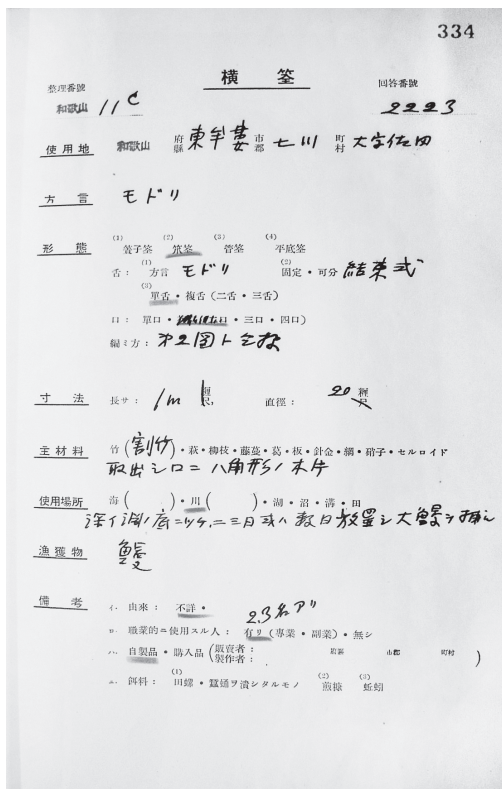 334
横筌
整理番號 回答番號
和歌山 11C 2223
使用地 和歌山 府縣 東牟婁 市郡 七川 町村 大字佐田
方言 モドリ
形態 (1)簍子筌 (2)筑筌 (3)管筌 (4)平底筌
舌： (1)方言 モドリ (2)固定・可分 結束式
(3)單舌・複舌（二舌・三舌）
口： 單口・三口・四口）
編ミ方： 第2図ト全様
寸法 長サ： 1m 糎尺, 直徑： 20 糎尺
主材料 竹（割竹）・萩・柳枝・藤蔓・葛・板・針金・網・硝子・セルロイド
取出シ口ニ八角形ノ木片
使用場所 海（ ）・川（ ）・湖・沼・溝・田
深イ淵ノ底ニツケ、二三日或ハ数日放置シ大鰻ヲ捕ル
漁獲物 鰻
備考 イ. 由來： 不詳・
2.3名アリ
ロ. 職業的ニ使用スル人： 有リ（專業・副業）・無シ
ハ. 自製品・購入品（販賣者： 製作者： 府縣 市郡 町村 ）
ニ. 餌料： (1)田螺・蠶蛹ヲ潰シタルモノ (2)煎糠 (3)蚯蚓